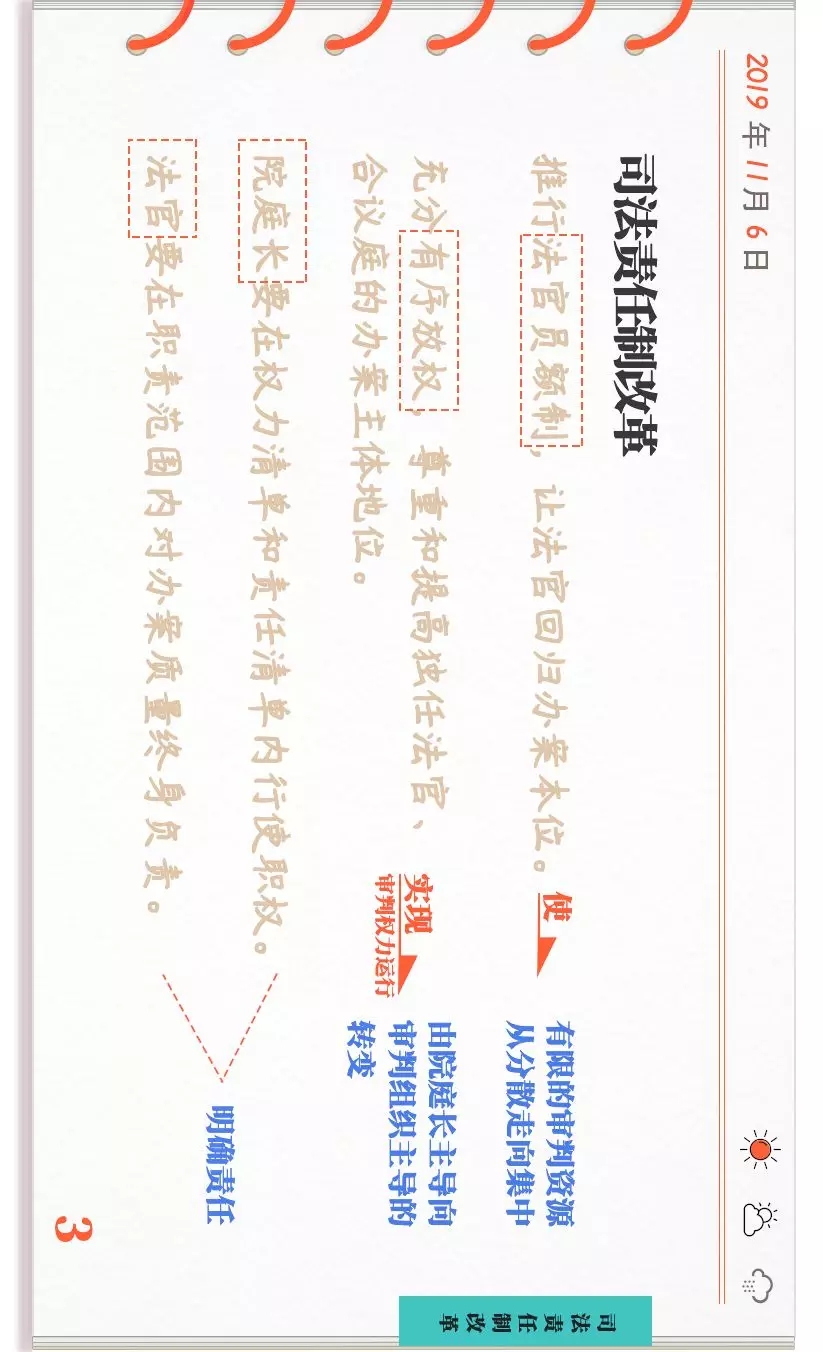 2019 年 11 月 6 日
司法责任制改革
推行法官员额制，让法官回归办案本位。
使
有限的审判资源
从分散走向集中
充分有序放权，尊重和提高独任法官、
合议庭的办案主体地位。
实现
审判权力运行
由院庭长主导向
审判组织主导的
转变
院庭长要在权力清单和责任清单内行使职权。
法官要在职责范围内对办案质量终身负责。
明确责任
3
司法责任制改革